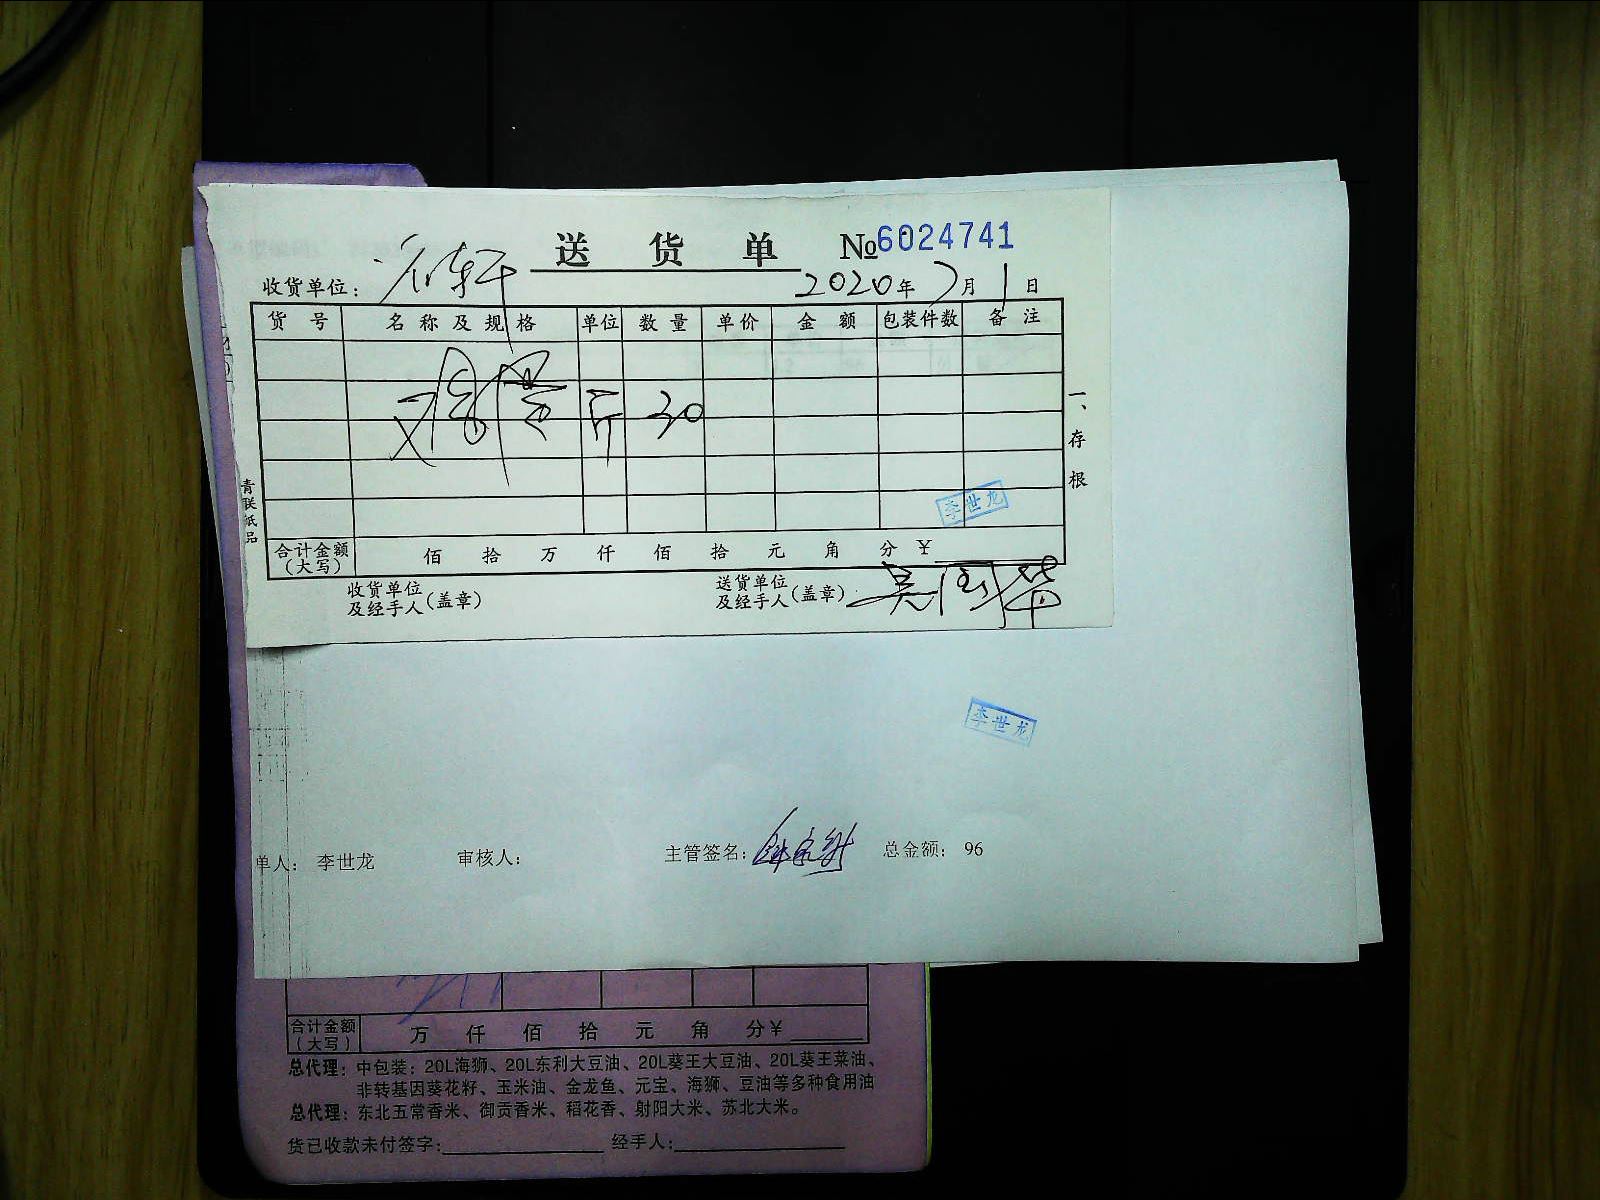 送 货 单 №6024741
收货单位：
2020年7月1日
货号 名称及规格 单位 数量 单价 金额 包装件数 备注
斤 30
李世龙
合计金额（大写） 佰 拾 万 仟 佰 拾 元 角 分 ￥
收货单位及经手人（盖章） 送货单位及经手人（盖章） 吴国华
一、存根
青联纸品
李世龙
单人： 李世龙 审核人： 主管签名： 总金额： 96
合计金额（大写） 万 仟 佰 拾 元 角 分￥
总代理：中包装：20L海狮、20L东利大豆油、20L葵王大豆油、20L葵王菜油、
非转基因葵花籽、玉米油、金龙鱼、元宝、海狮、豆油等多种食用油
总代理：东北五常香米、御贡香米、稻花香、射阳大米、苏北大米。
货已收款未付签字： 经手人：